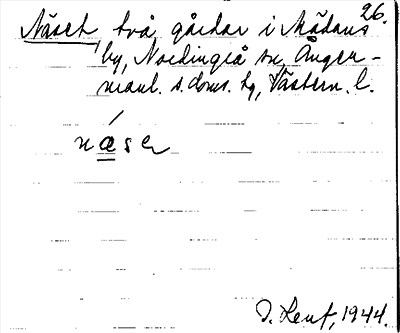 26.
Näset, två gårdar i Mädans
by, Nordingrå sn, Ånger-
manl. s. doms. hg, Västern. l.
næse
1944.